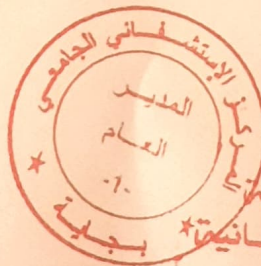 المركز الإستشفائي الجامعي
المدير
العام
-٦-
بجاية